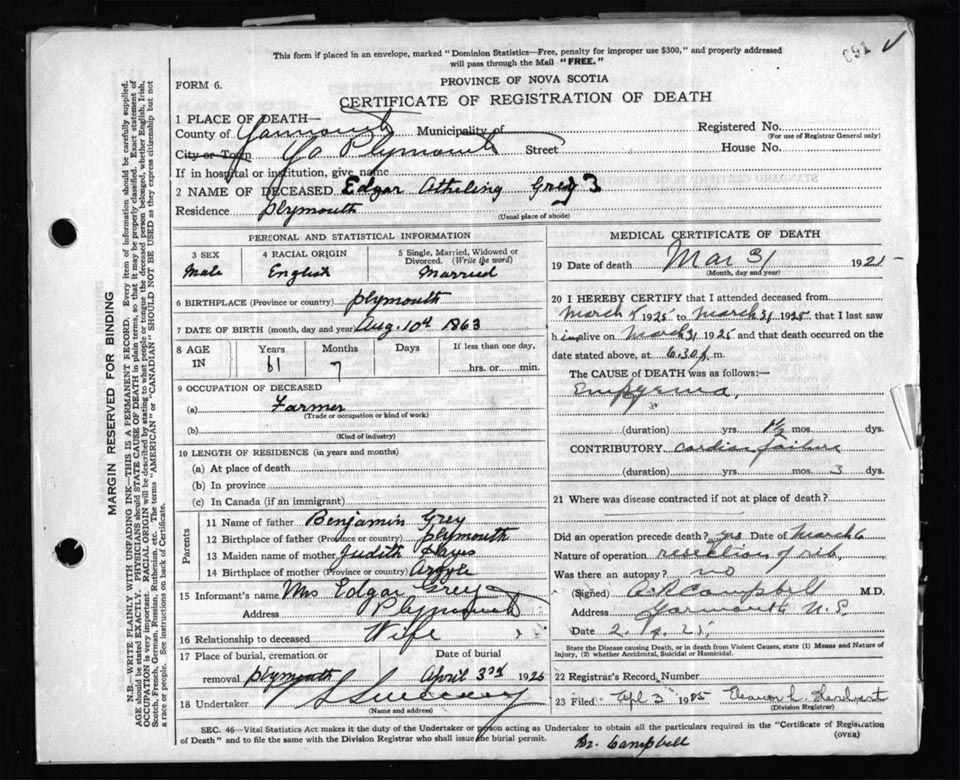 091 ✓
This form if placed in an envelope, marked "Dominion Statistics—Free, penalty for improper use $300," and properly addressed
will pass through the Mail "FREE."
PROVINCE OF NOVA SCOTIA
FORM 6.
CERTIFICATE OF REGISTRATION OF DEATH
1 PLACE OF DEATH—
County of Yarmouth Municipality of Registered No.
(For use of Registrar General only)
City or Town Plymouth Street House No.
If in hospital or institution, give name
2 NAME OF DECEASED Edgar Atheling Grey 3
Residence Plymouth
(Usual place of abode)
PERSONAL AND STATISTICAL INFORMATION
3 SEX
Male
4 RACIAL ORIGIN
English
5 Single, Married, Widowed or
Divorced. (Write the word)
Married
6 BIRTHPLACE (Province or country) Plymouth
7 DATE OF BIRTH (month, day and year) Aug. 10th 1863
8 AGE
IN
Years
61
Months
7
Days
If less than one day,
hrs. or min.
9 OCCUPATION OF DECEASED
(a) Farmer
(Trade or occupation or kind of work)
(b)
(Kind of industry)
10 LENGTH OF RESIDENCE (in years and months)
(a) At place of death
(b) In province
(c) In Canada (if an immigrant)
Parents
11 Name of father Benjamin Grey
12 Birthplace of father (Province or country) Plymouth
13 Maiden name of mother Judith Hayes
14 Birthplace of mother (Province or country) Argyle
15 Informant's name Mrs Edgar Grey
Address Plymouth
16 Relationship to deceased Wife
17 Place of burial, cremation or
removal Plymouth
Date of burial
April 3rd 1925
18 Undertaker
(Name and address)
MEDICAL CERTIFICATE OF DEATH
19 Date of death Mar 31 1925
(Month, day and year)
20 I HEREBY CERTIFY that I attended deceased from
March 5 1925 to March 31 1925 that I last saw
him alive on March 31 1925 and that death occurred on
date stated above, at 6.30 p. m.
The CAUSE of DEATH was as follows:—
Empyema,
(duration) yrs. 1½ mos. dys.
CONTRIBUTORY cardiac failure
(duration) yrs. mos. 3 dys.
21 Where was disease contracted if not at place of death?
Did an operation precede death? yes Date of March 6
Nature of operation resection of rib
Was there an autopsy? no
(Signed) Campbell M.D.
Address Yarmouth N.S.
Date 2. 4. 25.
State the Disease causing Death, or in death from Violent Causes, state (1) Means and Nature of
Injury, (2) whether Accidental, Suicidal or Homicidal.
22 Registrar's Record Number
23 Filed Apl 3 1925 Eleanor L.
(Division Registrar)
SEC. 46—Vital Statistics Act makes it the duty of the Undertaker or person acting as Undertaker to obtain all the particulars required in the "Certificate of Registration
of Death" and to file the same with the Division Registrar who shall issue the burial permit.
(OVER)
Dr. Campbell
MARGIN RESERVED FOR BINDING
N.B.—WRITE PLAINLY WITH UNFADING INK—THIS IS A PERMANENT RECORD. Every item of information should be carefully supplied.
AGE should be stated EXACTLY. PHYSICIANS should STATE CAUSE OF DEATH in plain terms, so that it may be properly classified. Exact statement of
OCCUPATION is very important. RACIAL ORIGIN will be described by stating to what people or tongue the deceased person belonged, whether English, Irish,
Scotch, French, German, Russian, Ruthenian, etc. The terms "AMERICAN" or "CANADIAN" SHOULD NOT BE USED as they express citizenship but not
a race or people. See instructions on back of Certificate.